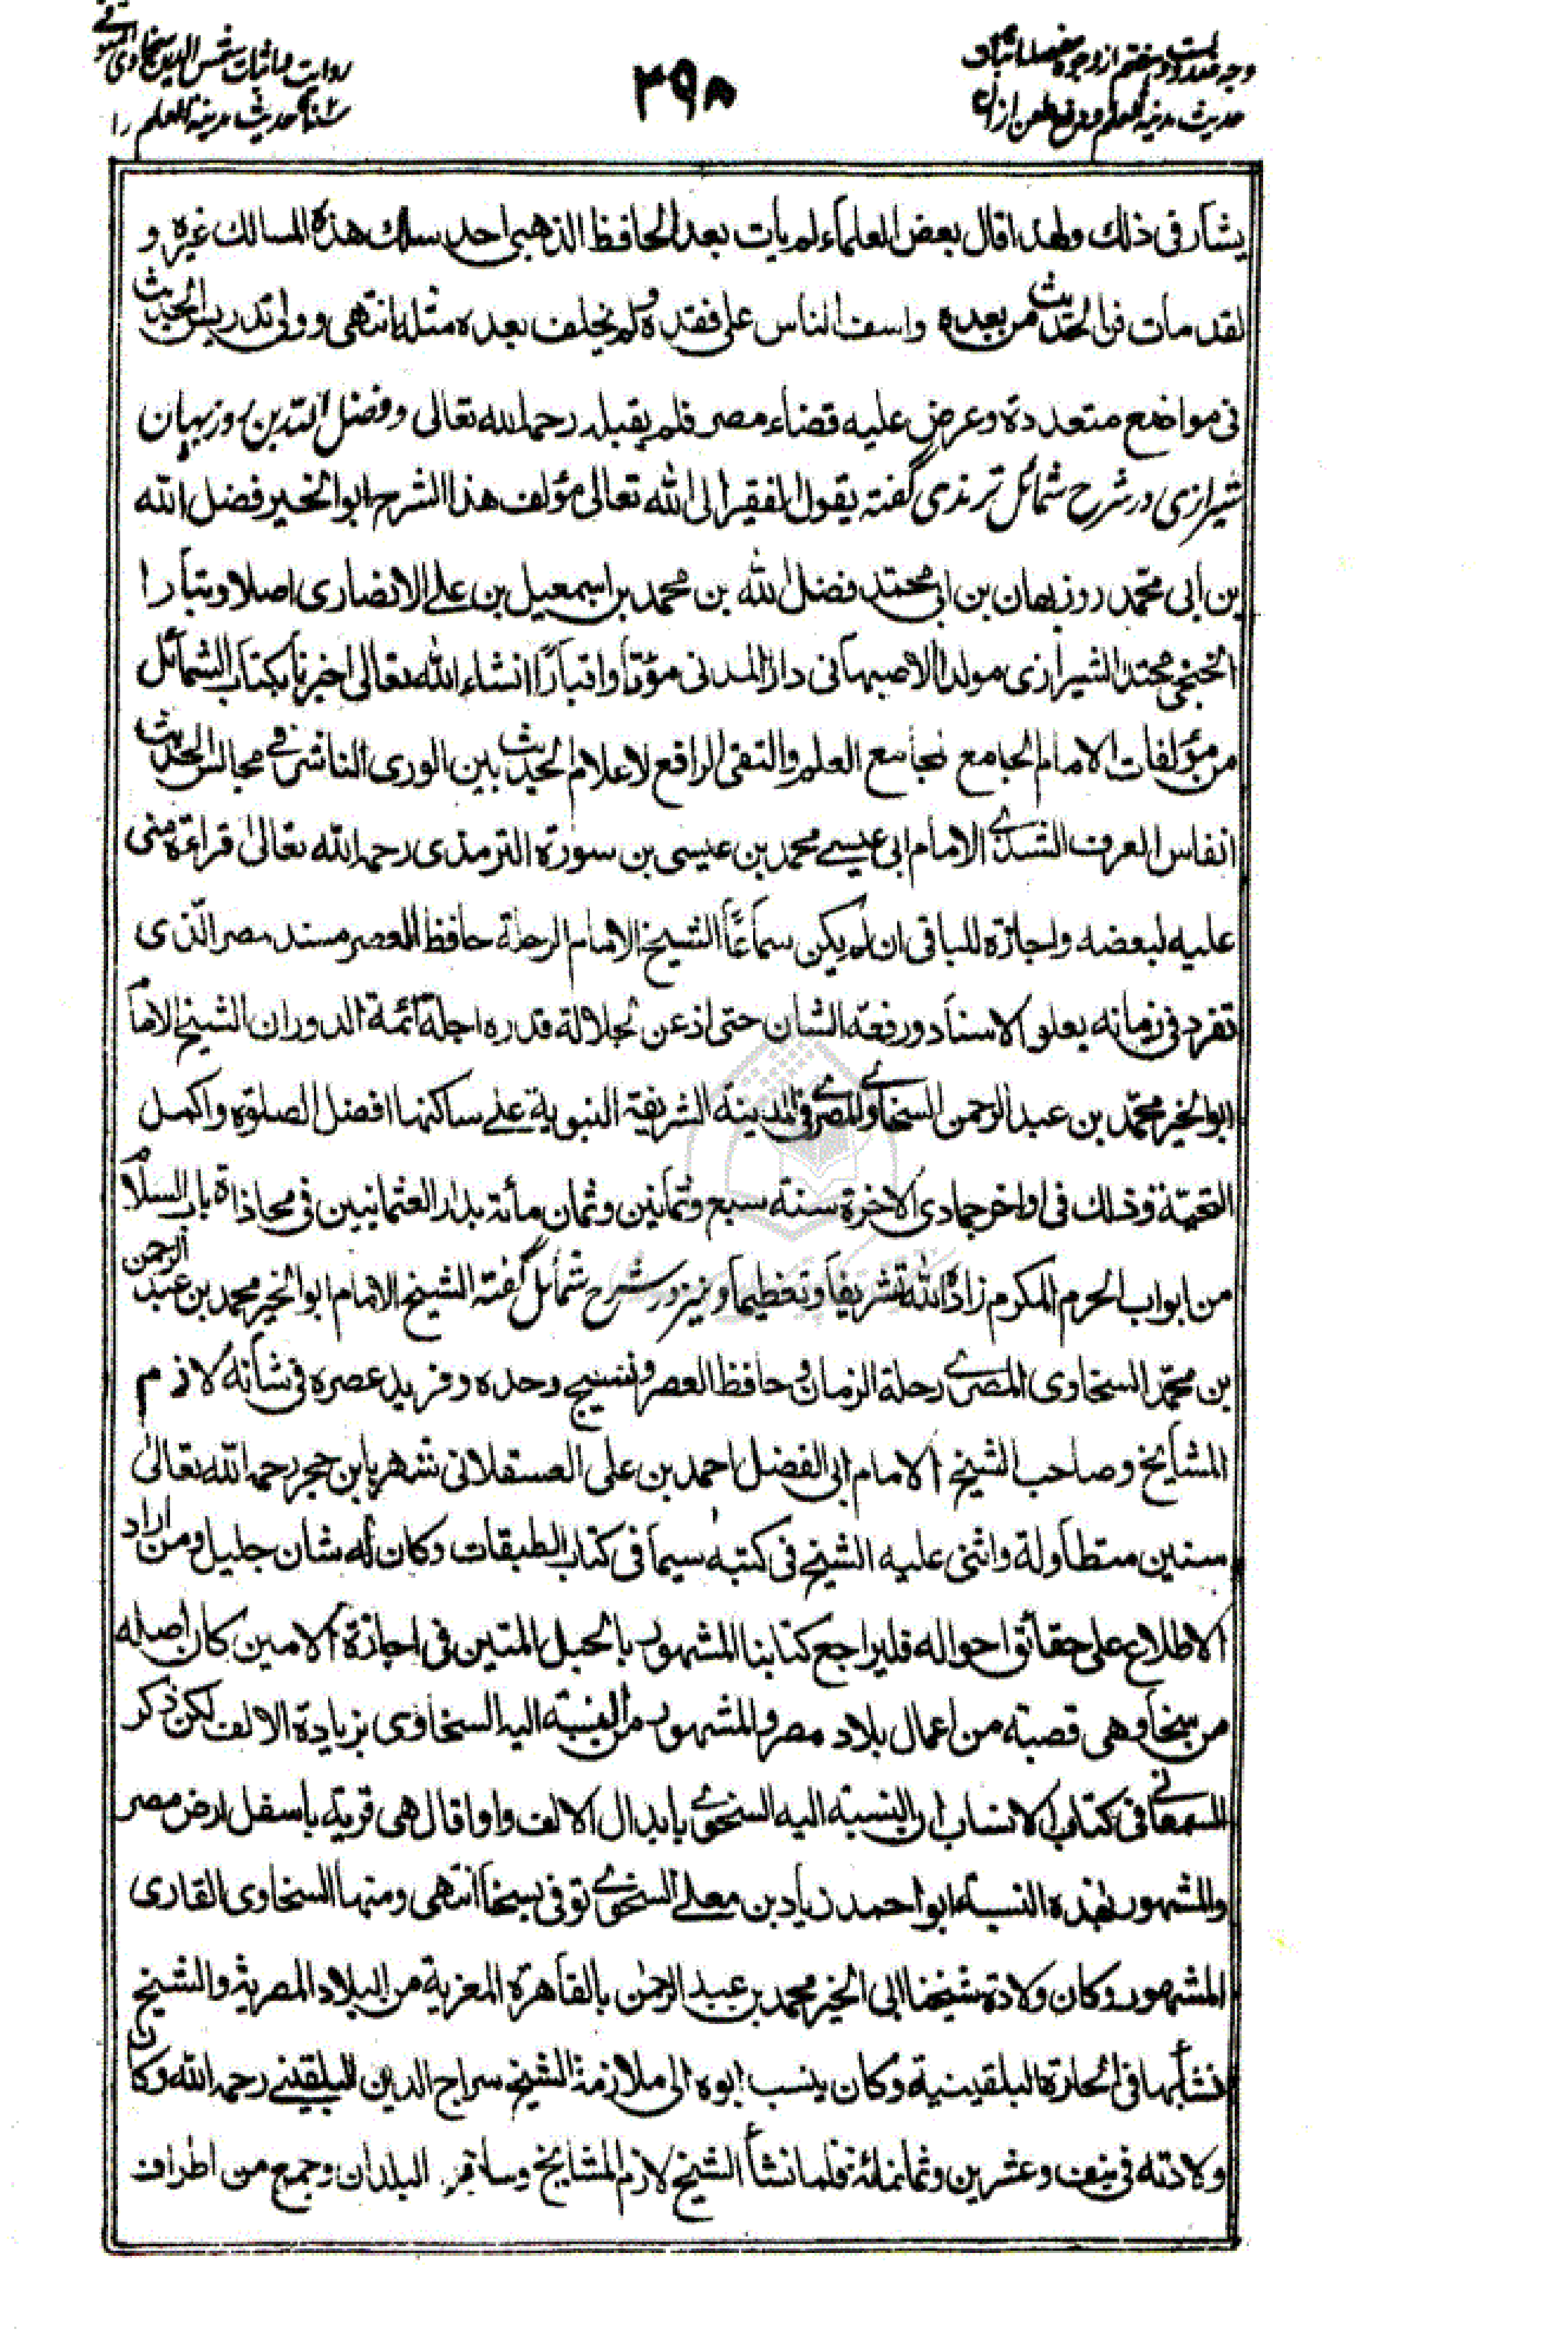 وجه صد و بست و هفتم از وجوه مفصله اثبات
حدیث مدینة العلم و دفع طعن ازان
۲۹۸
روایت و اثبات شمس الدین سخاوی المتوفی
حدیث مدینة العلم را
يشار فى ذلك ولهذا قال بعض العلماء لم يات بعد الحافظ الذهبى احد سلك هذه المسالك غيره و
لقد مات فن الحديث من بعده واسف الناس على فقده ولم يخلف بعده مثله انتهى وولى تدريس الحديث
فى مواضع متعددة وعرض عليه قضاء مصر فلم يقبله رحمه الله تعالى و فضل الله بن روزبهان
شیرازی در شرح شمائل ترمذی گفته يقول الفقير الى الله تعالى مؤلف هذا الشرح ابو الخير فضل الله
بن ابى محمد روزبهان بن ابى محمد فضل الله بن محمد بن اسمعيل بن على الانصارى اصلا وتبارا
الخنجى محتدا الشيرازى مولدا الاصبهانى دارا المدنى موتا واقبارا انشاء الله تعالى اخبرنا بكتاب الشمائل
من مؤلفات الامام الجامع لمجامع العلم والتقى الرافع لاعلام الحديث بين الورى الناشر فى مجالس الحديث
انفاس العرف الشذى الامام ابى عيسى محمد بن عيسى بن سورة الترمذى رحمه الله تعالى قراءة منى
عليه لبعضه واجازة للباقى ان لم يكن سماعًا الشيخ الامام الرحلة حافظ العصر مسند مصر الّذى
تفرد فى زمانه بعلو الاسناد ورفعة الشان حتى اذعن لجلالة قدره اجلة ائمة الدوران الشيخ الامام
ابو الخير محمّد بن عبد الرحمن السخاوى المصرى فى المدينة الشريفة النبوية على ساكنها افضل الصلوة واكمل
التحيّة وذلك فى اواخر جمادى الاخرة سنة سبع وثمانين وثمان مأئة بدار العثمانيين فى محاذاة باب السلام
من ابواب الحرم المكرم زاده الله تشريفا وتعظيما و نیز در شرح شمائل گفته الشيخ الامام ابو الخير محمد بن عبد الرحمن
بن محمّد السخاوى المصرى رحلة الزمان و حافظ العصر ونسيج وحده وفريد عصره فى شانه لازم
المشايخ وصاحب الشيخ الامام ابى الفضل احمد بن على العسقلانى شهر بابن حجر رحمه الله تعالى
سنين متطاولة واثنى عليه الشيخ فى كتبه سيما فى كتاب الطبقات وكان له شان جليل ومن اراد
الاطلاع على حقائق احواله فليراجع كتابنا المشهور بالحبل المتين فى اجازة الامين كان اصله
من سخا وهى قصبة من اعمال بلاد مصر والمشهور من النسبة اليه السخاوى بزيادة الالف لكن ذكر
السمعانى فى كتاب الانساب ان النسبة اليه السخوى بابدال الالف واوا قال هى قرية باسفل ارض مصر
والمشهور بهذه النسبة ابو احمد زياد بن معلى السخوى توفى بسخا انتهى ومنها السخاوى القارى
المشهور وكان ولادة شيخنا ابى الخير محمد بن عبد الرحمٰن بالقاهرة المعزية من البلاد المصرية والشيخ
نشأ بها فى الحارة البلقينية وكان ينسب ابوه الى ملازمة الشيخ سراج الدين البلقينى رحمه الله وكان
ولادته فى نيف وعشرين وثمانمائة فلما نشأ الشيخ لازم المشايخ وسافر البلدان وجمع من اطراف